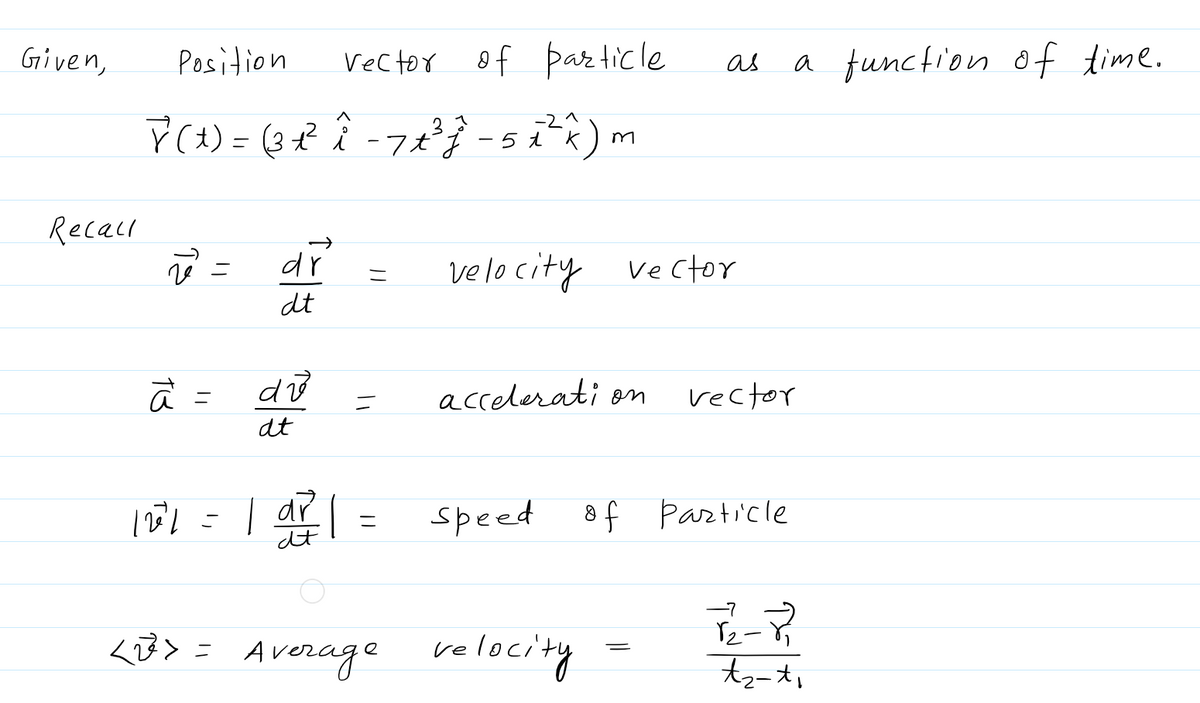 Given, Position vector of particle as a function of time.
r⃗(t) = (3t² î - 7t³ ĵ - 5t⁻² k̂) m
Recall
v⃗ = dr⃗/dt = velocity vector
a⃗ = dv⃗/dt = acceleration vector
|v⃗| = |dr⃗/dt| = speed of particle
<v⃗> = Average velocity = (r⃗₂ - r⃗₁)/(t₂ - t₁)